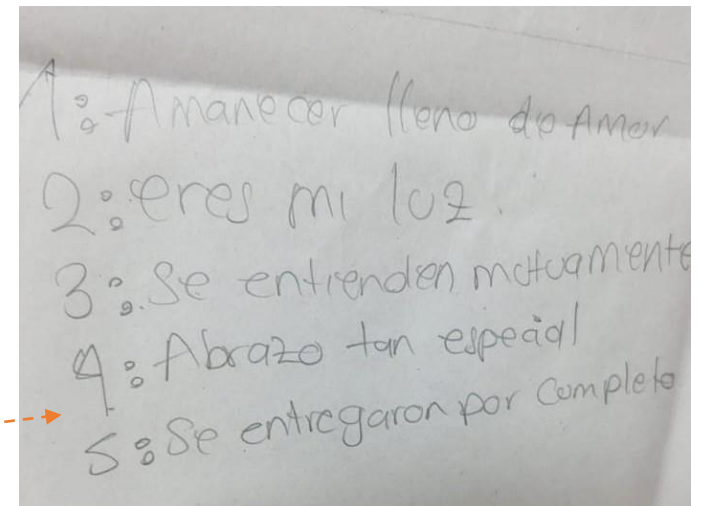 1: Amanecer lleno de Amor
2: eres mi luz.
3: Se entienden mutuamente
4: Abrazo tan especial
5: Se entregaron por completo